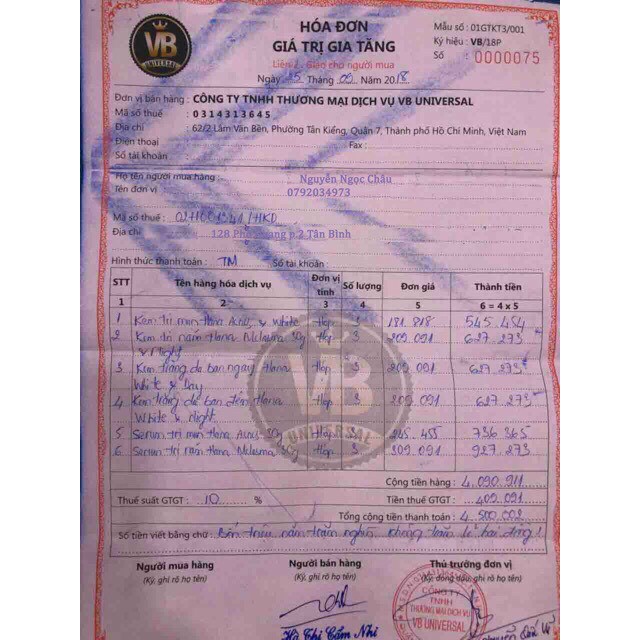 VB
UNIVERSAL
HÓA ĐƠN
GIÁ TRỊ GIA TĂNG
Liên 2 - Giao cho người mua
Ngày 25 Tháng 09 Năm 2018
Mẫu số : 01GTKT3/001
Ký hiệu : VB/18P
Số 0000075
Đơn vị bán hàng : CÔNG TY TNHH THƯƠNG MẠI DỊCH VỤ VB UNIVERSAL
Mã số thuế : 0314313645
Địa chỉ : 62/2 Lâm Văn Bền, Phường Tân Kiểng, Quận 7, Thành phố Hồ Chí Minh, Việt Nam
Điện thoại : Fax :
Số tài khoản :
Họ tên người mua hàng : Nguyễn Ngọc Châu
Tên đơn vị 0792034973
Mã số thuế : /HKD
Địa chỉ 128 Quang p.2 Tân Bình
Hình thức thanh toán : TM Số tài khoản :
STT Tên hàng hóa dịch vụ Đơn vị tính Số lượng Đơn giá Thành tiền
1 2 3 4 5 6 = 4 x 5
1 Kem trị mụn Hana Acnes & White Hộp 3 181.818 545.454
2 Kem trị nám Hana Melasma 30g & Night Hộp 3 209.091 627.273
3 Kem trắng da ban ngày Hana White & Day Hộp 3 209.091 627.273
4 Kem trắng da ban đêm Hana White & Night Hộp 3 209.091 627.273
5 Serum trị mụn Hana Acnes 30g Hộp 3 245.455 736.365
6 Serum trị nám Hana Melasma 30g Hộp 3 309.091 927.273
VB
UNIVERSAL
Cộng tiền hàng : 4.090.911
Thuế suất GTGT : 10 % Tiền thuế GTGT : 409.091
Tổng cộng tiền thanh toán : 4.500.002
Số tiền viết bằng chữ : Bốn triệu năm trăm nghìn không trăm lẻ hai đồng!
Người mua hàng Người bán hàng Thủ trưởng đơn vị
(Ký, ghi rõ họ tên) (Ký, ghi rõ họ tên) (Ký, đóng dấu, ghi rõ họ tên)
CÔNG TY
TNHH
THƯƠNG MẠI DỊCH VỤ
VB UNIVERSAL
Hồ Thị Cẩm Nhi